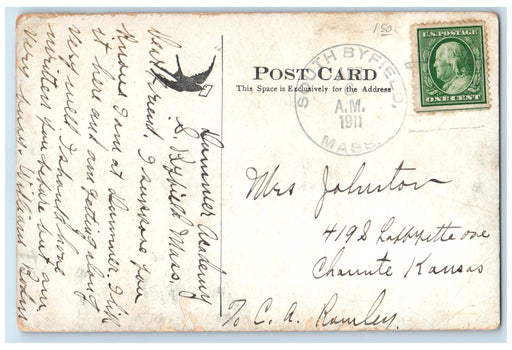 Dummer Academy
S. Byfield Mass.
Dear Friend, I suppose you
know I am at Dummer. I like
it here and am getting along
very well. I should have
written you before but am
very busy. William
1.50
POST CARD
This Space is Exclusively for the Address
SOUTH BYFIELD,
A.M.
1911
MASS.
U.S. POSTAGE
ONE CENT
Mrs Johnston
419 S Lafayette ave
Chanute Kansas
To C. A. Ramley.